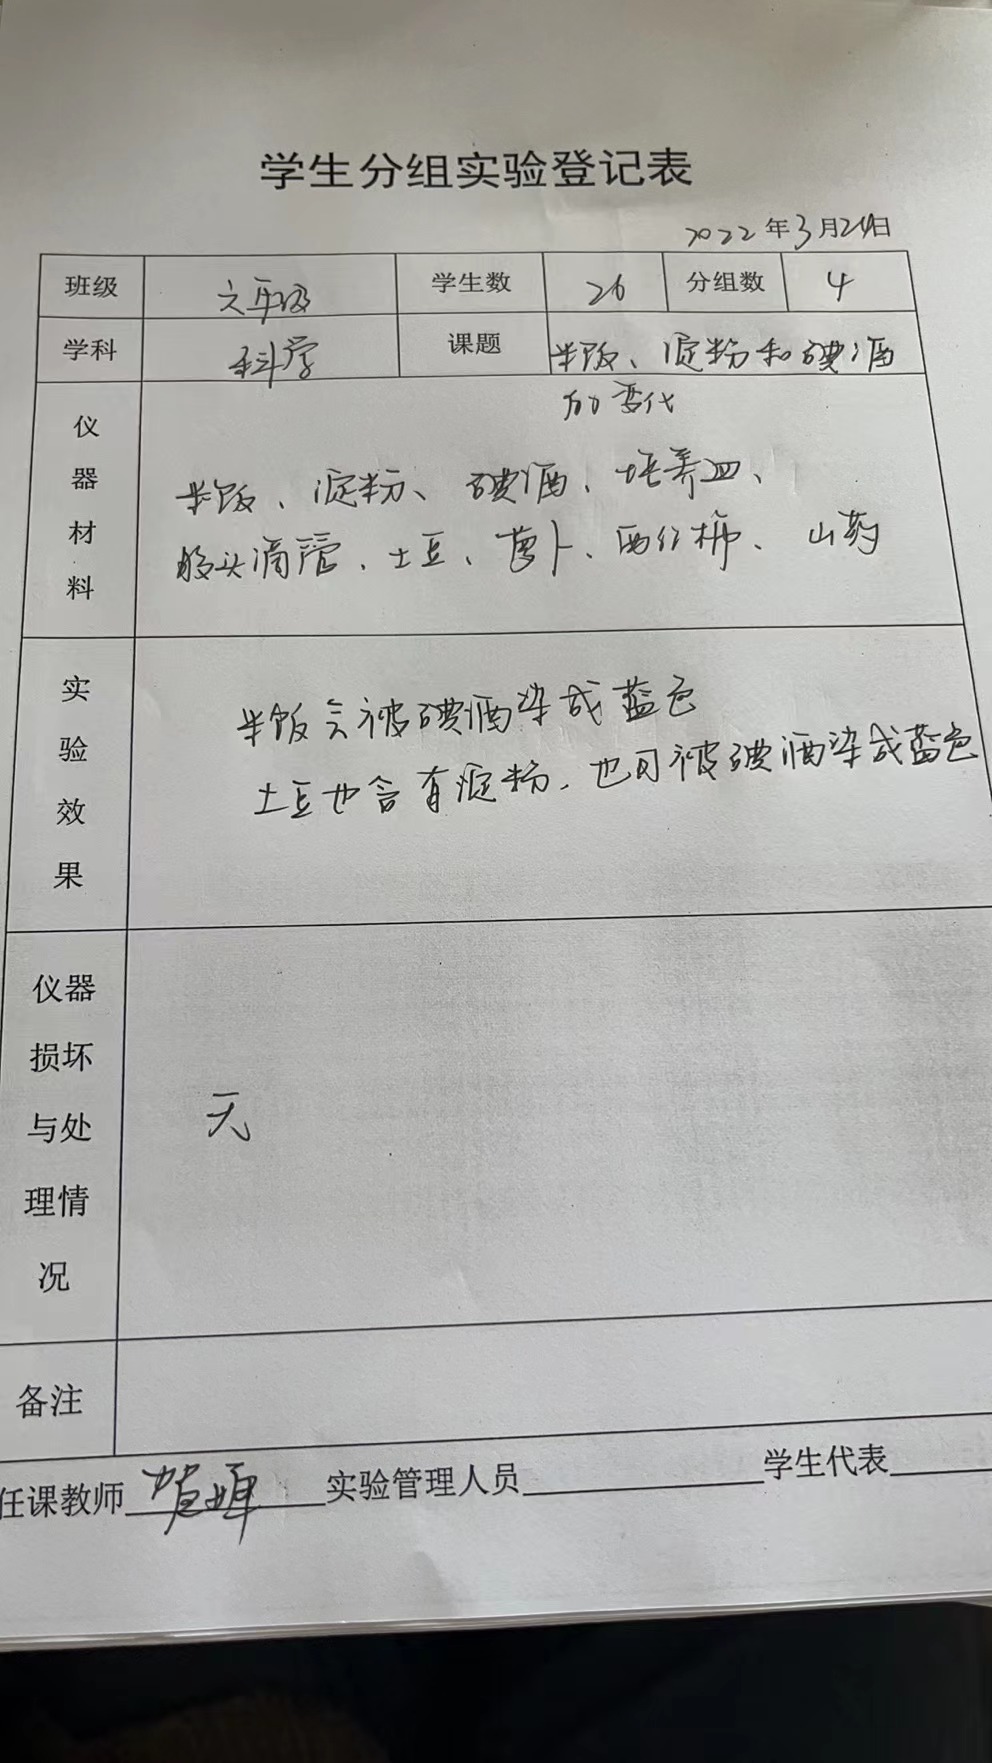 学生分组实验登记表
2022年3月24日
班级 六年级 学生数 26 分组数 4
学科 科学 课题 米饭、淀粉和碘酒
的变化
仪器材料
米饭、淀粉、碘酒、培养皿、
胶头滴管、土豆、萝卜、西红柿、山药
实验效果
米饭会被碘酒染成蓝色
土豆也含有淀粉，也可被碘酒染成蓝色
仪器
损坏
与处
理情
况
无
备注
任课教师 实验管理人员 学生代表